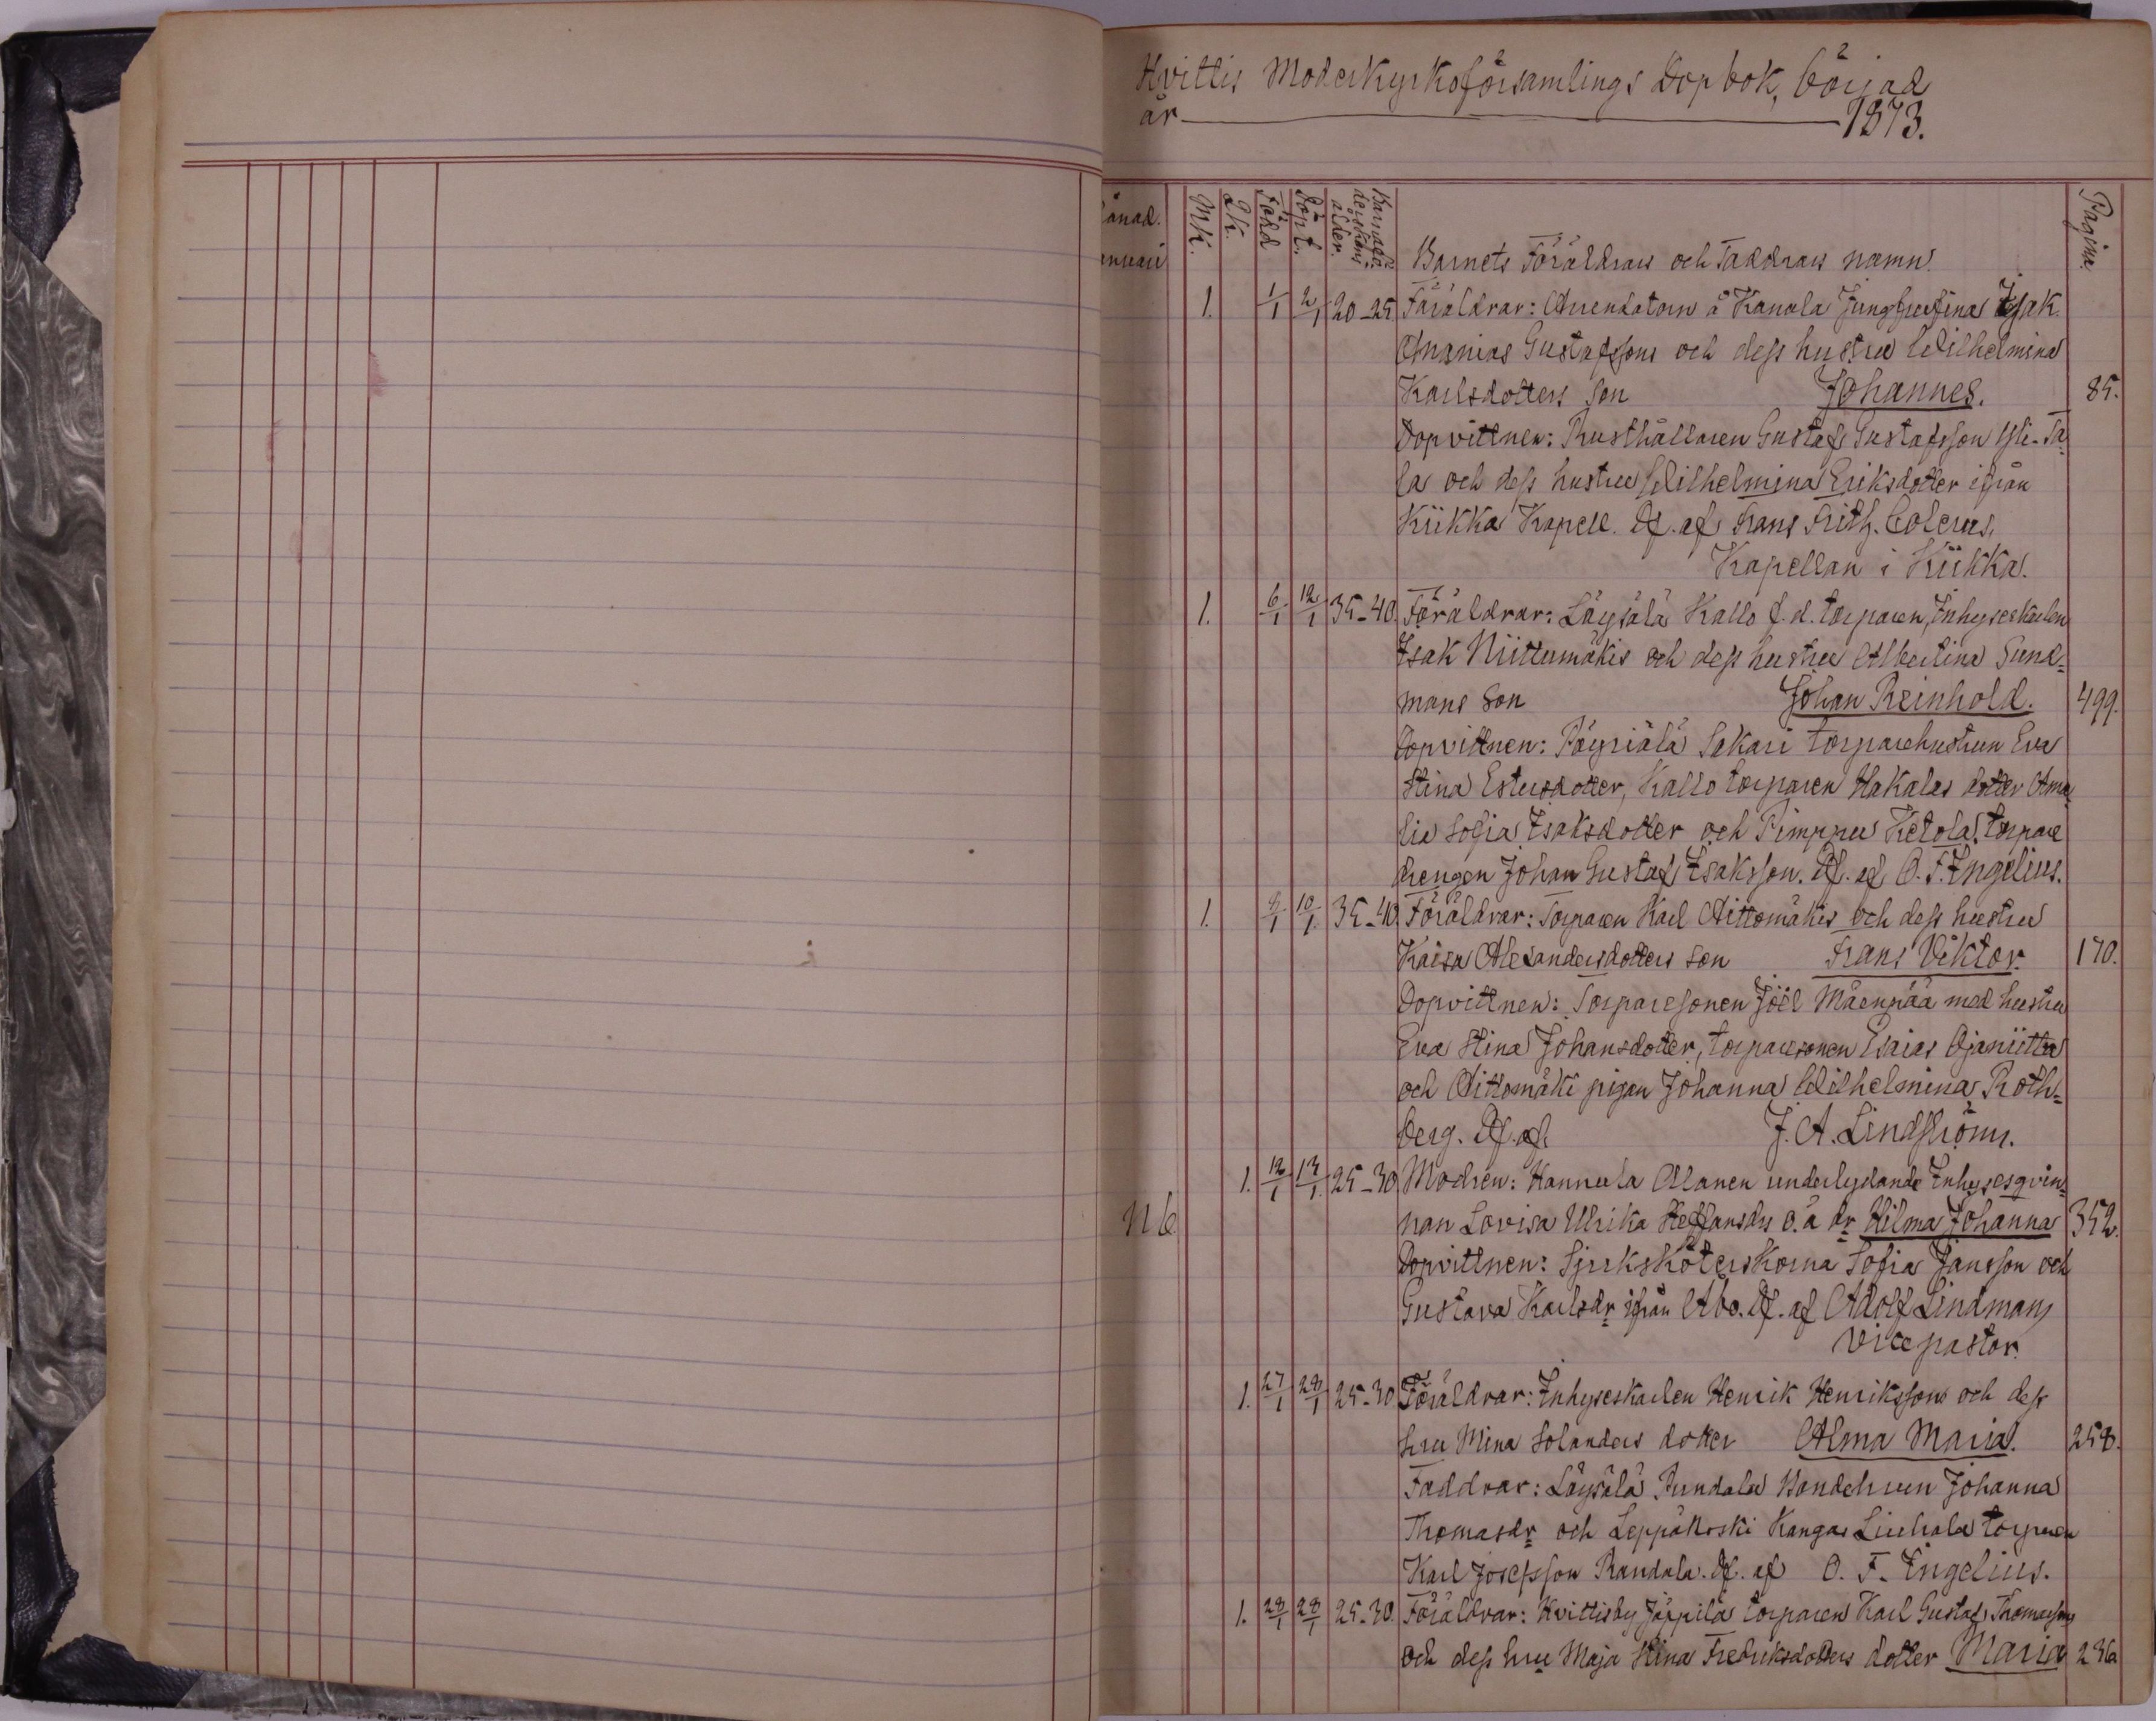 Hvittis Moderkyrkoförsamlings Dopbok, börjad
år 1873.
Mk. Qk. Född Döpt. Barnaföderskans ålder. Pagina.
Barnets Föräldrars och Faddrars namn.
1. 1/1 2/1 20-25. Föräldrar: Arrendatorn å Kanala Jungfrufina Isak
Ananias Gustafssons och dess hustru Wilhelmina
Karlsdotters son Johannes. 85.
Dopvittnen: Rusthållaren Gustaf Gustafsson Yli-Ta-
la och dess hustru Wilhelmina Eriksdotter ifrån
Kiikka Kapell. Df. af Frans Frith. Colerus,
Kapellan i Kiikka.
1. 6/1 12/1 35-40. Föräldrar: Löysälä Kallo f.d. torparen, Inhyseskarlen
Isak Niittumäkis och dess hustru Albertina Sund-
mans son Johan Reinhold. 499.
Dopvittnen: Pöyriälä Sakari torparehustrun Eva
Stina Estersdotter, Kallo torparen Hakalas dotter Ama-
lia Sofia Isaksdotter och Pimppu Ketola torpare
drengen Johan Gustaf Isaksson. Df. af O. F. Ingelius.
1. 8/1 10/1 35-40. Föräldrar: Torparen Karl Aittomäkis och dess hustru
Kaisa Alexandersdotters son Frans Viktor. 170.
Dopvittnen: Torparesonen Joël Mäenpää med hustru
Eva Stina Johansdotter, torparesonen Esaias Ojaniittu
och Aittomäki pigan Johanna Wilhelmina Roth-
berg. Df. af J. A. Lindström.
1. 12/1 13/1 25-30 Modren: Hannula Alanen underlydande Inhysesqvin-
nan Lovisa Ulrika Steffansdrs o. ä dr Hilma Johanna 352.
Dopvittnen: Sjuksköterskorna Sofia Jansson och
Gustava Karlsdr ifrån Åbo. Df. af Adolf Lindman,
vicepastor.
1. 27/1 28/1 25-30 Föräldrar: Inhyseskarlen Henrik Henrikssons och dess
hru Mina Solanders dotter Alma Maria. 258.
Faddrar: Löysälä Pundala Bondehrun Johanna
Thomasdr och Leppäkoski Kangas Liuhala torparen
Karl Josefsson Randala. Df. af O. F. Ingelius.
1. 28/1 28/1 25-30. Föräldrar: Hvittisby Jäppilä torparen Karl Gustaf Thomassons
och dess hru Maja Stina Fredriksdotters dotter Maria 236